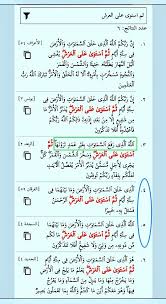 ثم استوى على العرش
عدد النتائج: ٦
١. إِنَّ رَبَّكُمُ اللَّهُ الَّذِي خَلَقَ السَّمَاوَاتِ وَالْأَرْضَ [الأعراف: ٥٤]
فِي سِتَّةِ أَيَّامٍ ثُمَّ اسْتَوَى عَلَى الْعَرْشِ
يُغْشِي اللَّيْلَ النَّهَارَ يَطْلُبُهُ حَثِيثًا وَالشَّمْسَ وَالْقَمَرَ
وَالنُّجُومَ مُسَخَّرَاتٍ بِأَمْرِهِ أَلَا لَهُ الْخَلْقُ وَالْأَمْرُ تَبَارَكَ اللَّهُ رَبُّ
الْعَالَمِينَ
٢. إِنَّ رَبَّكُمُ اللَّهُ الَّذِي خَلَقَ السَّمَاوَاتِ وَالْأَرْضَ [يونس: ٣]
فِي سِتَّةِ أَيَّامٍ ثُمَّ اسْتَوَى عَلَى الْعَرْشِ يُدَبِّرُ الْأَمْرَ مَا
مِنْ شَفِيعٍ إِلَّا مِنْ بَعْدِ إِذْنِهِ ذَلِكُمُ اللَّهُ رَبُّكُمْ فَاعْبُدُوهُ
أَفَلَا تَذَكَّرُونَ
٣. اللَّهُ الَّذِي رَفَعَ السَّمَاوَاتِ بِغَيْرِ عَمَدٍ تَرَوْنَهَا ثُمَّ [الرعد: ٢]
اسْتَوَى عَلَى الْعَرْشِ وَسَخَّرَ الشَّمْسَ وَالْقَمَرَ كُلٌّ
٤. الَّذِي خَلَقَ السَّمَاوَاتِ وَالْأَرْضَ وَمَا بَيْنَهُمَا فِي [الفرقان: ٥٩]
سِتَّةِ أَيَّامٍ ثُمَّ اسْتَوَى عَلَى الْعَرْشِ الرَّحْمَنُ
فَاسْأَلْ بِهِ خَبِيرًا
٥. اللَّهُ الَّذِي خَلَقَ السَّمَاوَاتِ وَالْأَرْضَ وَمَا بَيْنَهُمَا [السجدة: ٤]
فِي سِتَّةِ أَيَّامٍ ثُمَّ اسْتَوَى عَلَى الْعَرْشِ مَا لَكُمْ
مِنْ دُونِهِ مِنْ وَلِيٍّ وَلَا شَفِيعٍ أَفَلَا تَتَذَكَّرُونَ
٦. هُوَ الَّذِي خَلَقَ السَّمَاوَاتِ وَالْأَرْضَ فِي سِتَّةِ أَيَّامٍ [الحديد: ٤]
ثُمَّ اسْتَوَى عَلَى الْعَرْشِ يَعْلَمُ مَا يَلِجُ فِي الْأَرْضِ